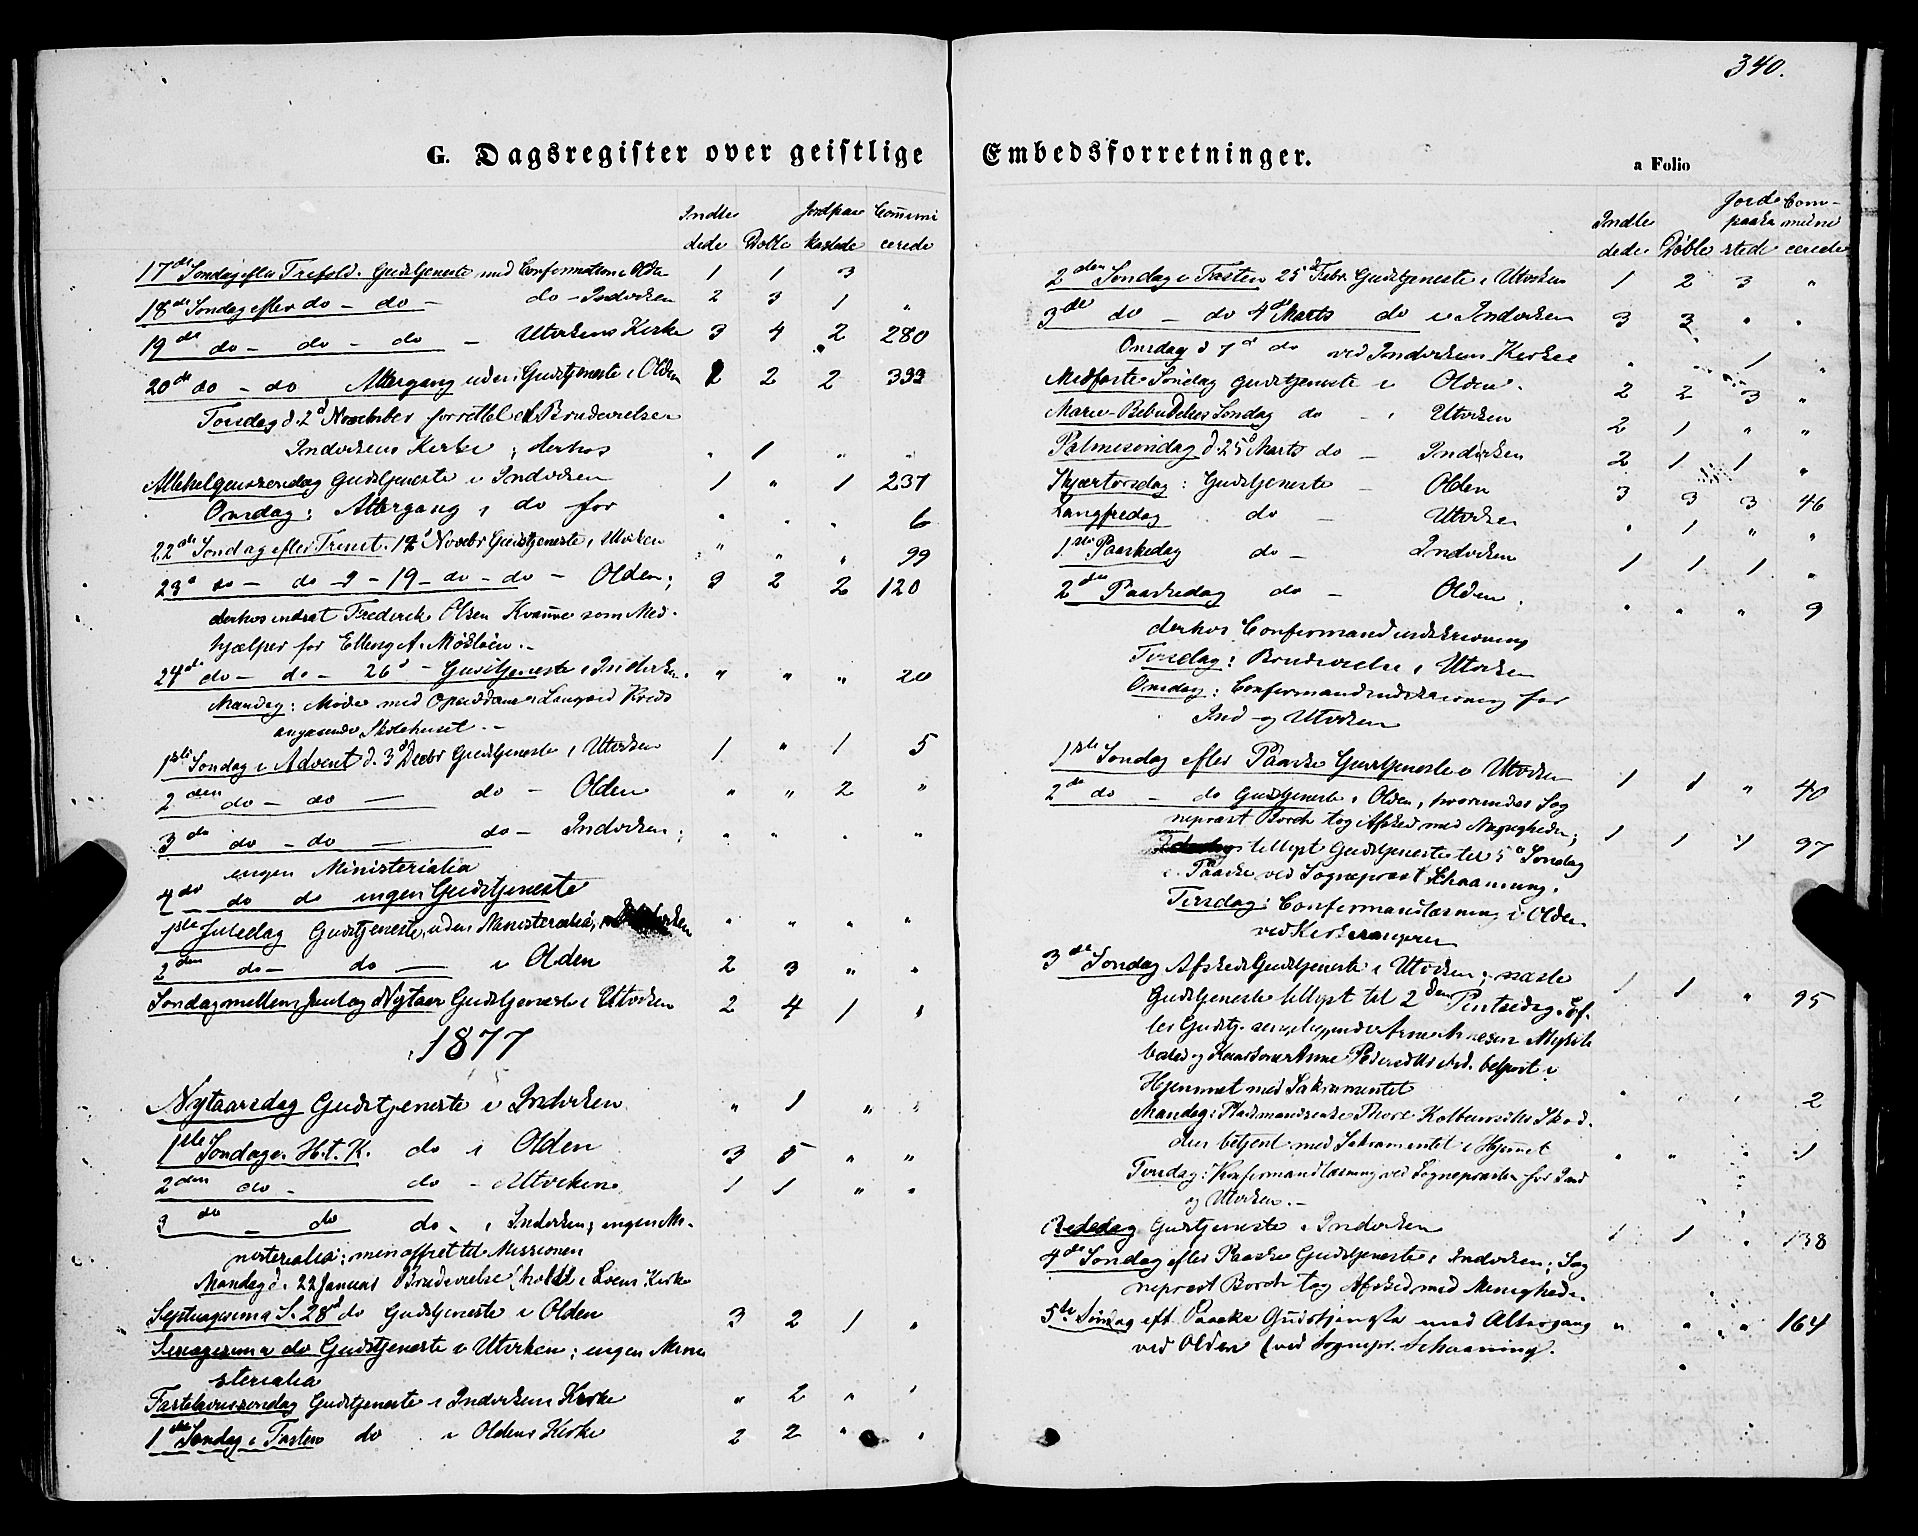 340.
G. Dagsregister over geistlige Embedsforretninger.
a Folio
Indle Jordpaa Comuni
dede Døbte kastede cerede
17de Søndag efter Trefold. Gudstjeneste med Confirmation i Olden 1 1 3
18de Søndag efter do - do - do - Indviken 2 3 1 "
19de do - do - do - Utvikens Kirke 3 4 2 280
20de do - do Altergang uden Gudstjeneste i Olden 2 2 2 333
Torsdag d. 2d November forrettet et Brudevielse
Indvikens Kirke; derhos " 1 " "
Allehelgenssøndag Gudstjeneste i Indviken 1 " 1 237
Onsdag: Altergang i do for " " " 6
22de Søndag efter Trinit. 12d Novbr Gudstjeneste i Utviken " " " 99
23d do - do - 19 - do - do - Olden; 3 2 2 120
derhos indsat Frederik Olsen Kvamme som Med-
hjælper for Elling A. Møklöw. -
24de do - do - 26d - Gudstjeneste i Indviken. " " " 20
Mandag: Møde med i Kreds
angaaende Skolehuset. -
1ste Søndag i Advent d. 3d Decbr Gudstjeneste i Utviken 1 " 1 5
2den do - do - do - Olden " " 2 "
3de do - do - do - Indviken; " " " "
ingen Ministerialia
4de do do ingen Gudstjeneste
1ste Juledag Gudstjeneste, uden Ministerialia, " " " "
2den do - do - i Olden 2 3 " "
Søndag mellem Jul og Nytaar Gudstjeneste i Utviken 2 4 1 "
1877
Nytaarsdag Gudstjeneste i Indviken " 1 " "
1ste Søndag e. H. t. K. do i Olden 3 5 " "
2den do - do - Utviken 1 1 " "
3de - do do - i Indviken; ingen Mi-
nisterialia; men offret til Missionen
Mandag d. 22 Januar Brudevielse (holdt i Loens Kirke
Septuagesima S. 28d do Gudstjeneste i Olden 3 2 1 "
Sexagesima do Gudstjeneste i Utviken; ingen Mini
sterialia
Fastelavnssøndag Gudstjeneste i Indvikens Kirke " 2 " "
1ste Søndag i Fasten do i Oldens Kirke 2 2 " "
Jorde Com-
Indle paaka muni
dede Døbte stede cerede
2den Søndag i Fasten 25d Febr. Gudstjeneste i Utviken 1 2 3 "
3de do - do 4d Marts do i Indviken 3 3 " "
Onsdag d 7d do ved Indvikens Kirke " " 1 "
Midfaste Søndag Gudstjeneste i Olden. 2 2 3 "
Mariæ Bebudelses Søndag do - i Utviken 2 1 " "
Palmesøndag d. 25d Marts do - Indviken 2 1 1 "
Skjærtorsdag: Gudstjeneste - Olden 3 3 3 46
Langfredag do - Utviken " 1 " "
1ste Paaskedag do - Indviken 1 1 1 "
2den Paaskedag do - Olden; " " " 9
derhos Confirmandindskrivning
Tirsdag: Brudevielse i Utviken
Onsdag: Confirmandindskrivning for
Ind- og Utviken
1ste Søndag efter Paaske Gudstjeneste i Utviken 1 1 " 40
2de do - do Gudstjeneste i Olden, hvorunder Sog
nepræst Borch tog Afsked med Menigheden; 1 1 4 97
tillyst Gudstjeneste til 5te Søndag
e. Paaske ved Sognepræst Schaanning.
Tirsdag: Confirmandlæsning i Olden
ved Kirkesangeren
3de Søndag Afskeds Gudstjeneste i Utviken; næste 1 1 " 95
Gudstjeneste tillyst til 2den Pintsedag. Ef-
ter Gudstj. Arne Arnesen
og Kaarkone Anne betjent i
Hjemmet med Sakramentet " " " 2
Mandag: Pladsmandsenke
betjent med Sakramentet i Hjemmet " " " 1
Tirsdag: Konfirmandlæsning ved Sognepræsten for Ind
og Utviken. -
Bededag Gudstjeneste i Indviken 1 1 " 138
4de Søndag efter Paaske Gudstjeneste i Indviken; Sog
nepræst Borch tog Afsked med Menigheden.
5te Søndag eft. Paaske Gudstjeneste med Altergang " " " 164
ved Olden (ved Sognepr. Schaanning.